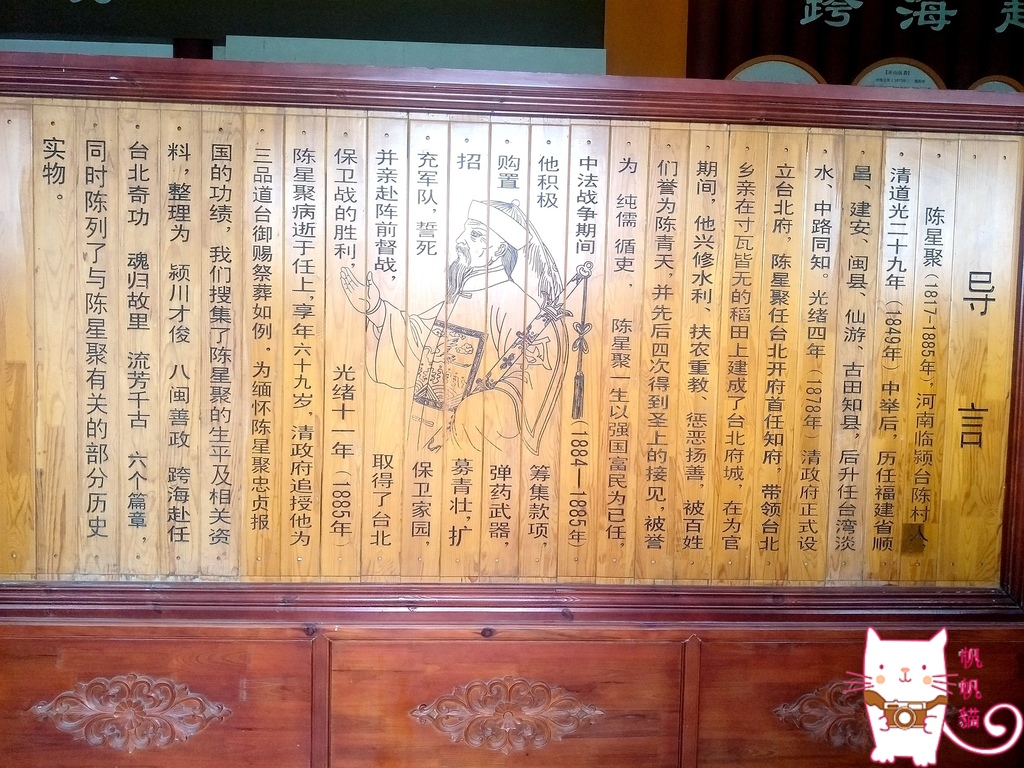 跨海
导言
陈星聚（1817-1885年），河南临颍台陈村人
清道光二十九年（1849年）中举后，历任福建省顺
昌、建安、闽县、仙游、古田知县，后升任台湾淡
水、中路同知。光绪四年（1878年）清政府正式设
立台北府，陈星聚任台北开府首任知府，带领台北
乡亲在寸瓦皆无的稻田上建成了台北府城，在为官
期间，他兴修水利、扶农重教、惩恶扬善，被百姓
们誉为陈青天，并先后四次得到圣上的接见，被誉
为 纯儒 循吏， 陈星聚一生以强国富民为己任，
中法战争期间 （1884—1885年）
他积极 筹集款项，
购置 弹药武器，
招 募青壮，扩
充军队，誓死 保卫家园，
并亲赴阵前督战， 取得了台北
保卫战的胜利， 光绪十一年（1885年）
陈星聚病逝于任上，享年六十九岁，清政府追授他为
三品道台御赐祭葬如例。为缅怀陈星聚忠贞报
国的功绩，我们搜集了陈星聚的生平及相关资
料，整理为 颍川才俊 八闽善政 跨海赴任
台北奇功 魂归故里 流芳千古 六个篇章，
同时陈列了与陈星聚有关的部分历史
实物。
帆帆貓